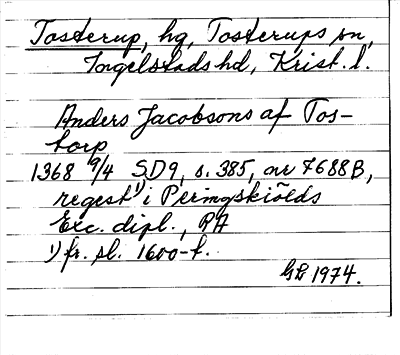 Tosterup, hg, Tosterups sn,
Ingelstads hd, Krist. l.
Anders Jacobsons af Tos-
torp
1368 9/4 SD9, s. 385, nr 7688B,
regest 1) i Peringskiölds
Exc. dipl., RA
1) fr. sl. 1600-t.
GL 1974.